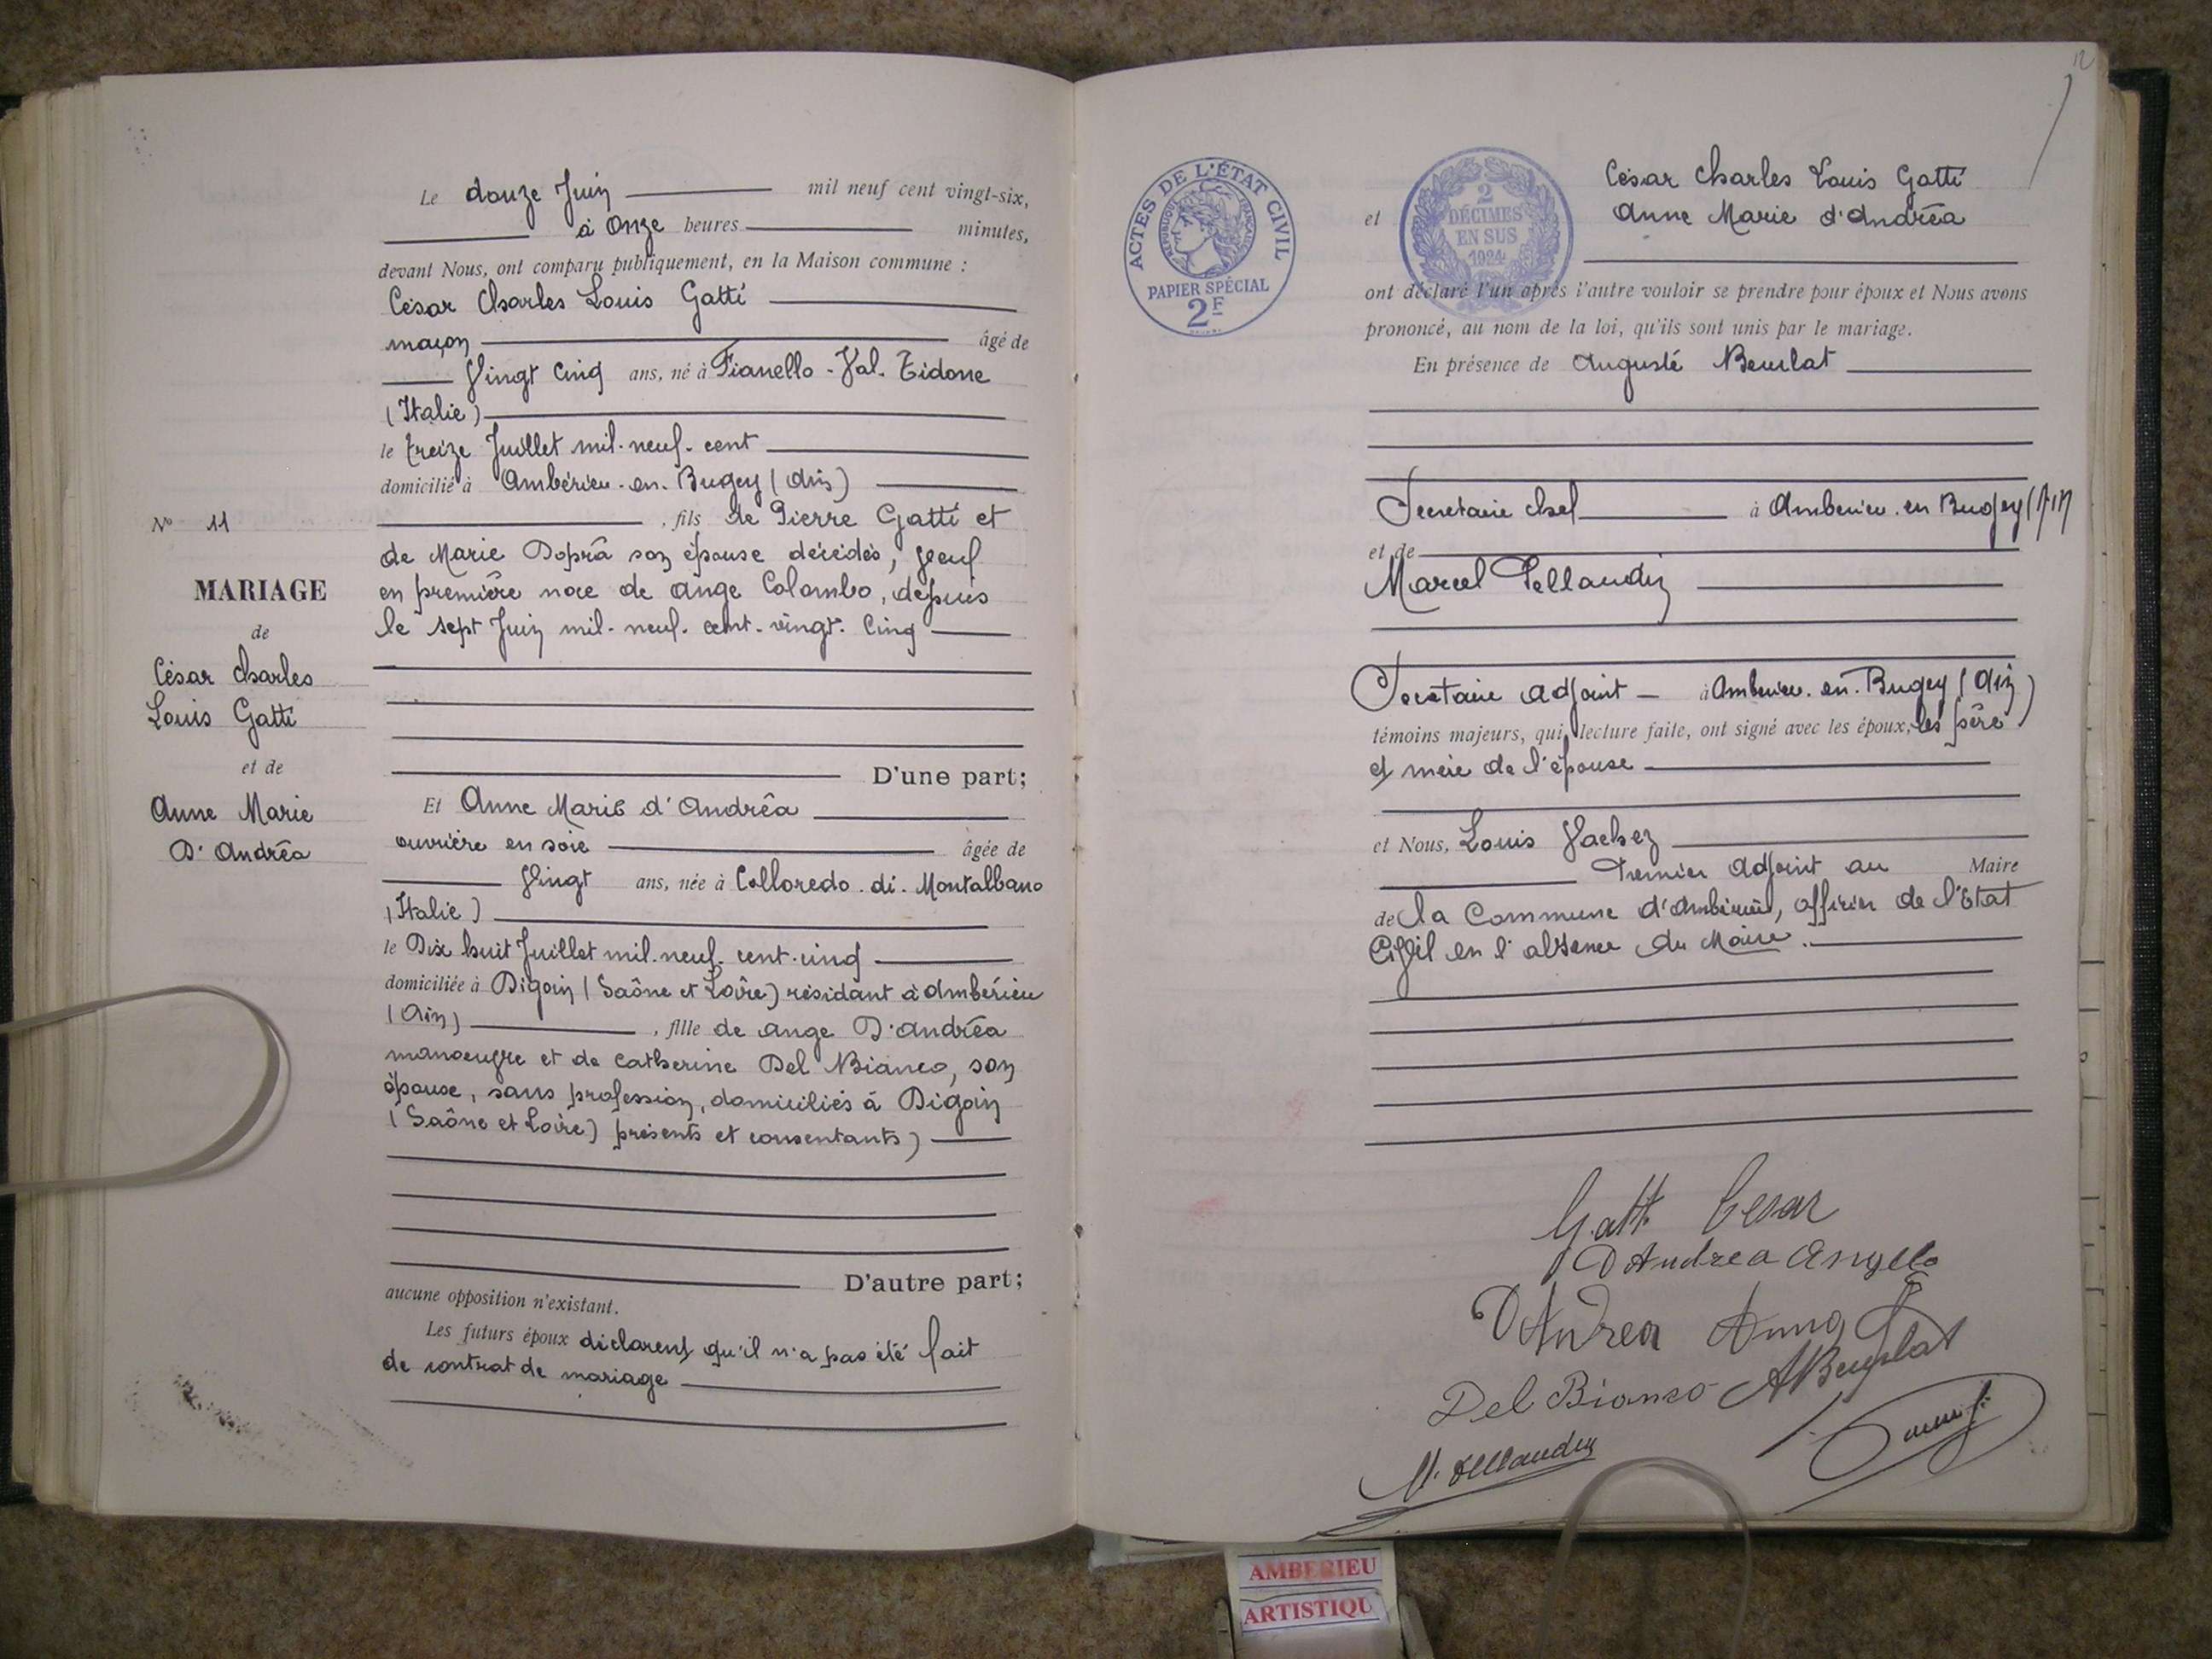 Le douze Juin mil neuf cent vingt-six,
à Onze heures minutes,
devant Nous, ont comparu publiquement, en la Maison commune :
César Charles Louis Gatti
maçon âgé de
Vingt Cinq ans, né à Pianello - Val. Tidone
(Italie)
le treize Juillet mil-neuf-cent
domicilié à Ambérieu-en-Bugey (Ain)
, fils de Pierre Gatti et
de Marie Doprà son épouse décédés, Veuf
en première noce de Ange Colombo, depuis
le sept Juin mil-neuf-cent-vingt-Cinq
D'une part;
N° 11
MARIAGE
de
César Charles
Louis Gatti
et de
Anne Marie
D'Andréa
Et Anne Marie d'Andréa
ouvrière en soie âgée de
Vingt ans, née à Colloredo-di-Montalbano
(Italie)
le Dix huit Juillet mil-neuf-cent-cinq
domiciliée à Digoin (Saône et Loire) résidant à Ambérieu
(Ain) , fille de Ange D'Andréa
manoeuvre et de Catherine Del Bianco, son
épouse, sans profession, domiciliés à Digoin
(Saône et Loire) présents et consentants)
D'autre part;
aucune opposition n'existant.
Les futurs époux déclarent qu'il n'a pas été fait
de contrat de mariage
12
ACTES DE L'ÉTAT CIVIL
RÉPUBLIQUE FRANÇAISE
PAPIER SPÉCIAL
2F
2
DÉCIMES
EN SUS
1924
César Charles Louis Gatti
et Anne Marie d'Andréa
ont déclaré l'un après l'autre vouloir se prendre pour époux et Nous avons
prononcé, au nom de la loi, qu'ils sont unis par le mariage.
En présence de Auguste Beurlat
Secrétaire chef à Ambérieu-en Bugey (Ain
et de
Marcel Pellaudin
Secrétaire adjoint à Ambérieu-en-Bugey (Ain)
témoins majeurs, qui, lecture faite, ont signé avec les époux, les père
et mère de l'épouse
et Nous, Louis Vachez
Premier Adjoint au Maire
de la Commune d'Ambérieu, officier de l'Etat
Civil en l'absence du Maire.
Gatti Cesar
D'Andrea Angelo
D'Andrea Anna
Del Bianco ABeurlat
M. Pellaudin
AMBERIEU
ARTISTIQU